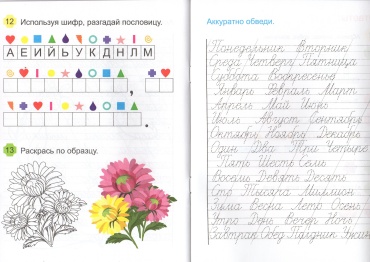 12 Используя шифр, разгадай пословицу.
А Е И Й Ь У К Д Н Л М
13 Раскрась по образцу.
Аккуратно обведи.
Понедельник Вторник
Среда Четверг Пятница
Суббота Воскресенье
Январь Февраль Март
Апрель Май Июнь
Июль Август Сентябрь
Октябрь Ноябрь Декабрь
Один Два Три Четыре
Пять Шесть Семь
Восемь Девять Десять
Сто Тысяча Миллион
Зима Весна Лето Осень
Утро День Вечер Ночь
Завтрак Обед Полдник Ужин